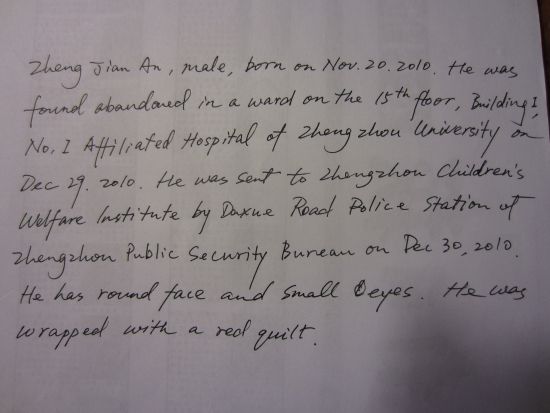 Zheng Jian An, male, born on Nov. 20. 2010. He was
found abandoned in a ward on the 15th floor, Building I,
No. I Affiliated Hospital of Zhengzhou University on
Dec 29. 2010. He was sent to Zhengzhou Children's
Welfare Institute by Daxue Road Police Station of
Zhengzhou Public Security Bureau on Dec 30, 2010.
He has round face and small eyes. He was
wrapped with a red quilt.